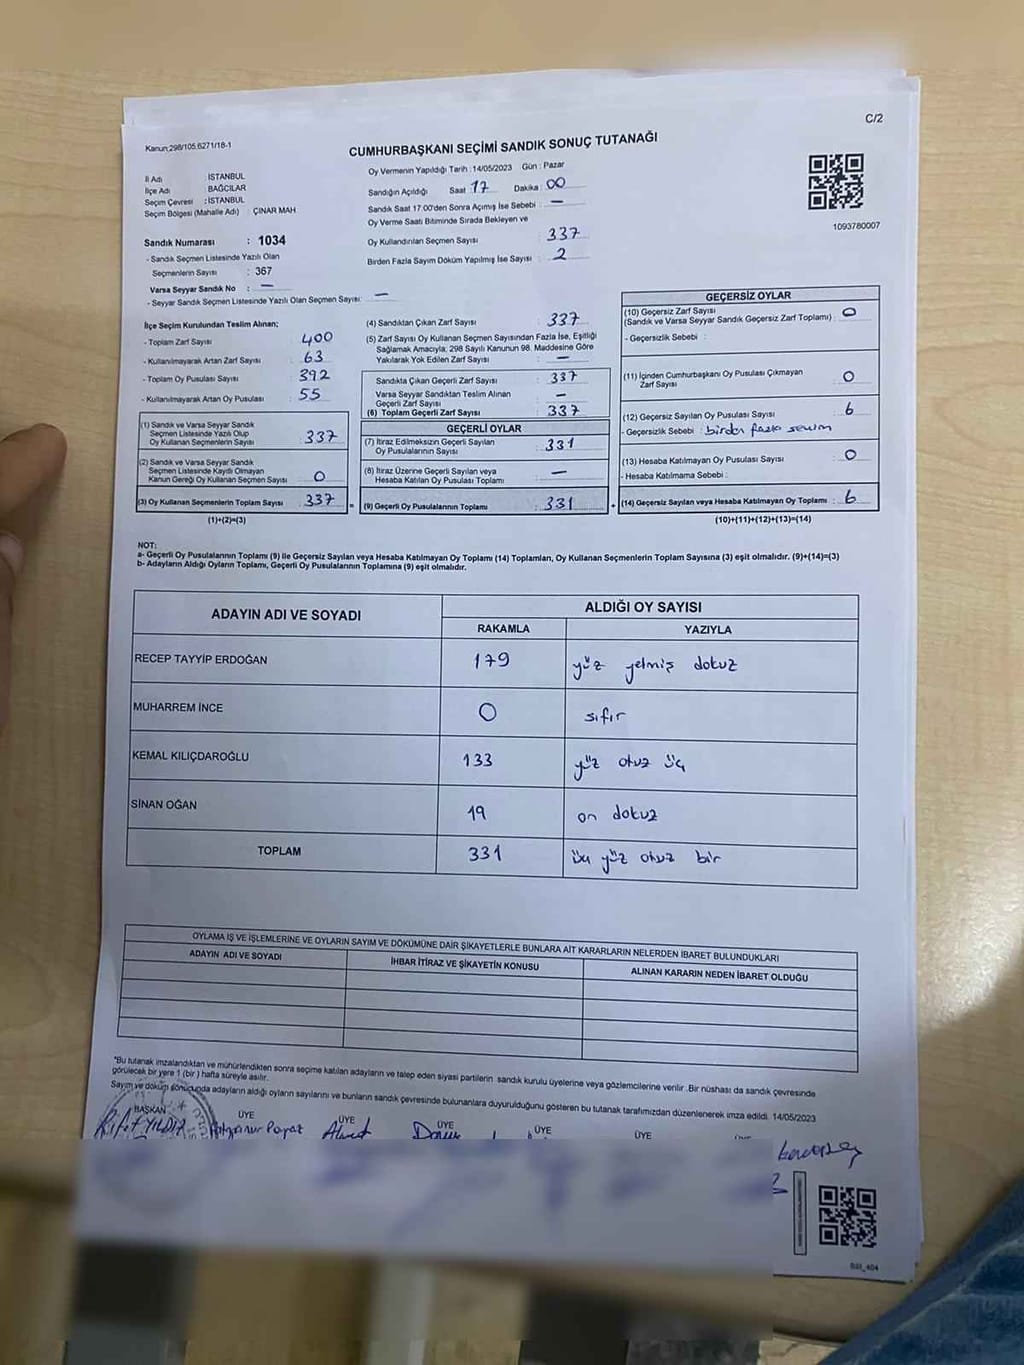 C/2
Kanun:298/105.6271/18-1
CUMHURBAŞKANI SEÇİMİ SANDIK SONUÇ TUTANAĞI
İl Adı : İSTANBUL
İlçe Adı : BAĞCILAR
Seçim Çevresi : İSTANBUL
Seçim Bölgesi (Mahalle Adı) ÇINAR MAH
Sandık Numarası : 1034
- Sandık Seçmen Listesinde Yazılı Olan
Seçmenlerin Sayısı : 367
Varsa Seyyar Sandık No : —
- Seyyar Sandık Seçmen Listesinde Yazılı Olan Seçmen Sayısı: —
Oy Vermenin Yapıldığı Tarih : 14/05/2023 Gün : Pazar
Sandığın Açıldığı Saat 17 Dakika : 00
Sandık Saat 17.00'den Sonra Açımış İse Sebebi : —
Oy Verme Saati Bitiminde Sırada Bekleyen ve
Oy Kullandırılan Seçmen Sayısı : 337
Birden Fazla Sayım Döküm Yapılmış İse Sayısı : 2
1093780007
İlçe Seçim Kurulundan Teslim Alınan;
- Toplam Zarf Sayısı : 400
- Kullanılmayarak Artan Zarf Sayısı : 63
- Toplam Oy Pusulası Sayısı : 392
- Kullanılmayarak Artan Oy Pusulası : 55
(1) Sandık ve Varsa Seyyar Sandık
Seçmen Listesinde Yazılı Olup
Oy Kullanan Seçmenlerin Sayısı : 337
(2) Sandık ve Varsa Seyyar Sandık
Seçmen Listesinde Kayıtlı Olmayan
Kanun Gereği Oy Kullanan Seçmen Sayısı : 0
(3) Oy Kullanan Seçmenlerin Toplam Sayısı : 337
(1)+(2)=(3)
(4) Sandıktan Çıkan Zarf Sayısı : 337
(5) Zarf Sayısı Oy Kullanan Seçmen Sayısından Fazla İse, Eşitliği
Sağlamak Amacıyla, 298 Sayılı Kanunun 98. Maddesine Göre
Yakılarak Yok Edilen Zarf Sayısı : —
Sandıkta Çıkan Geçerli Zarf Sayısı : 337
Varsa Seyyar Sandıktan Teslim Alınan
Geçerli Zarf Sayısı : —
(6) Toplam Geçerli Zarf Sayısı : 337
GEÇERLİ OYLAR
(7) İtiraz Edilmeksizin Geçerli Sayılan
Oy Pusulalarının Sayısı : 331
(8) İtiraz Üzerine Geçerli Sayılan veya
Hesaba Katılan Oy Pusulası Toplamı : —
= (9) Geçerli Oy Pusulalarının Toplamı : 331
GEÇERSİZ OYLAR
(10) Geçersiz Zarf Sayısı
(Sandık ve Varsa Seyyar Sandık Geçersiz Zarf Toplamı) : 0
- Geçersizlik Sebebi :
(11) İçinden Cumhurbaşkanı Oy Pusulası Çıkmayan
Zarf Sayısı : 0
(12) Geçersiz Sayılan Oy Pusulası Sayısı : 6
- Geçersizlik Sebebi : birden fazla seçim
(13) Hesaba Katılmayan Oy Pusulası Sayısı : 0
- Hesaba Katılmama Sebebi :
+ (14) Geçersiz Sayılan veya Hesaba Katılmayan Oy Toplamı : 6
(10)+(11)+(12)+(13)=(14)
NOT:
a- Geçerli Oy Pusulalarının Toplamı (9) ile Geçersiz Sayılan veya Hesaba Katılmayan Oy Toplamı (14) Toplamları, Oy Kullanan Seçmenlerin Toplam Sayısına (3) eşit olmalıdır. (9)+(14)=(3)
b- Adayların Aldığı Oyların Toplamı, Geçerli Oy Pusulalarının Toplamına (9) eşit olmalıdır.
ADAYIN ADI VE SOYADI ALDIĞI OY SAYISI
RAKAMLA YAZIYLA
RECEP TAYYİP ERDOĞAN 179 yüz yetmiş dokuz
MUHARREM İNCE 0 sıfır
KEMAL KILIÇDAROĞLU 133 yüz otuz üç
SİNAN OĞAN 19 on dokuz
TOPLAM 331 üç yüz otuz bir
OYLAMA İŞ VE İŞLEMLERİNE VE OYLARIN SAYIM VE DÖKÜMÜNE DAİR ŞİKAYETLERLE BUNLARA AİT KARARLARIN NELERDEN İBARET BULUNDUKLARI
ADAYIN ADI VE SOYADI İHBAR İTİRAZ VE ŞİKAYETİN KONUSU ALINAN KARARIN NEDEN İBARET OLDUĞU
*Bu tutanak imzalandıktan ve mühürlendikten sonra seçime katılan adayların ve talep eden siyasi partilerin sandık kurulu üyelerine veya gözlemcilerine verilir. Bir nüshası da sandık çevresinde
görülecek bir yere 1 (bir ) hafta süreyle asılır.
Sayım ve döküm sonucunda adayların aldığı oyların sayılarını ve bunların sandık çevresinde bulunanlara duyurulduğunu gösteren bu tutanak tarafımızdan düzenlenerek imza edildi. 14/05/2023
BAŞKAN ÜYE ÜYE ÜYE ÜYE ÜYE
YILDIZ Ahmet